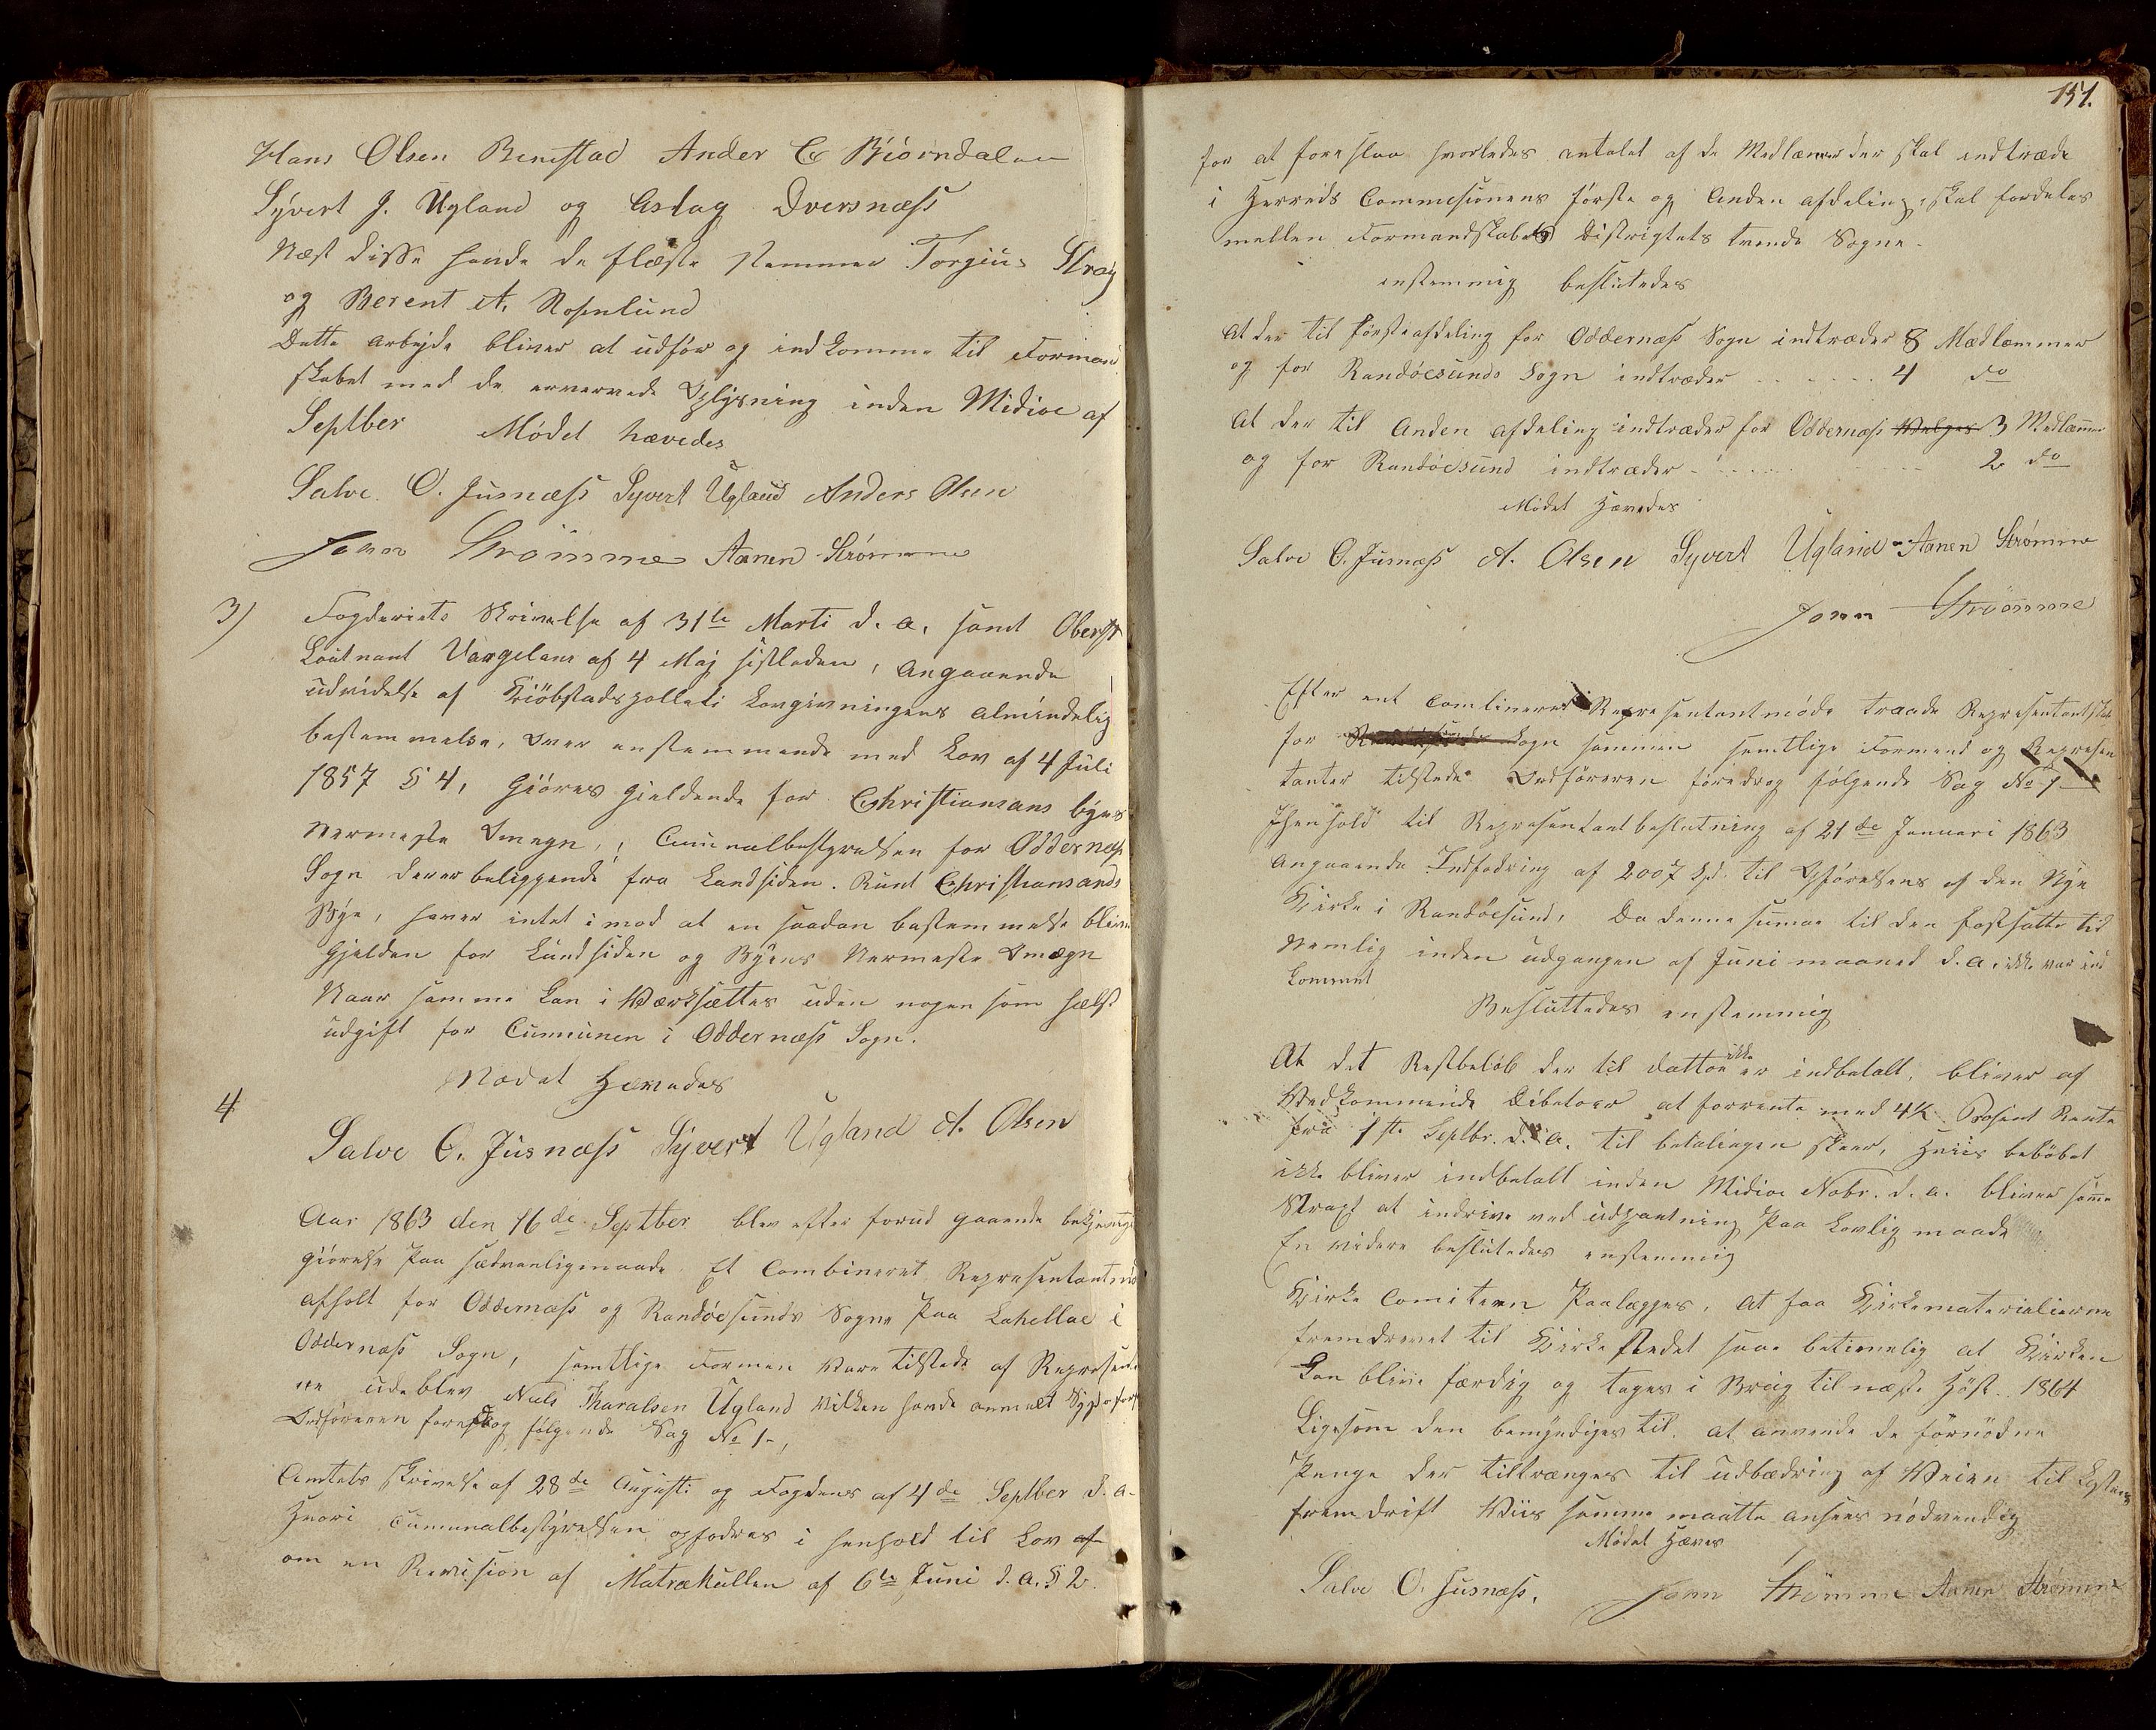 Hans Olsen Benestad Ander C Biörndalen
Syvert J. Ugland og Aslag Dversnæss
Næst disse havde de flæste stemmer Torgius Stray
og Berent A. Rosenlund
Dette Arbejde bliver at udför og indkomme til Formand
skabet med de ervervede Oplysning inden Midioe af
Septber Mödet hævedes
Salve O. Jusnæss Syvert Ugland Anders Olsen
Jonn Strömme Aanen Strømme
3) Fogderiets Skrivelse af 31te Marti d. a. samt Oberst
Löitnant Vangelans af 4 Maj sistleden, angaaende
udvidelse af Kiöbstadspolleti Lovgivningens almindelig
bestemmelse, Over enstemmende med Lov af 4 Juli
1857 § 4, Giöres gieldende for Christiansans byes
Nermeste Omegn, Cumunalbestyrelsen for Oddernæs
Sogn derer beliggende fra Landsiden. Runt Christiansands
Bye, haver intet imod at en saadan bestemmelse blive
Gjelden for Landsiden og Byens Nermeste Omægn
Naar samme kan i Værksættes uden nogen som hælst
udgift for Cumunen i Oddernæss Sogn.
Mödet Hævedes
4
Salve O. Jusnæss Syvert Ugland A. Olsen
Aar 1863 den 16de Septber blev efter forud gaaende bekjentgj
giörelse paa sædvanligmaade Et Combineret Representantmö
afholt for Oddernæss og Randöesunds Sogne paa Lahellae i
Oddernæss Sogn, samtlige Formen vare tilstede af Represen
ne udeblev Niels Tharalsen Ugland vilken havde anmelt Syg
Ordföreren foredrog fölgende Sag No 1-,
Amtets skrivelse af 28de Augusti og Fogdens af 4de Septber d. a.
Hvori Cumunalbestÿrelsen opfodres i henhold til Lov af
om en Revision af Matrækullen af 6te Juni d. a. § 2.
151.
for at foreslaa hvorledes antalet af de Medlæmer der skal indtræde
i Herreds Commisionens förste og Anden afdeling, skal fordeles
mellem Formandskabets Distrigtets tvende Sogne.
enstemmig beslutedes
At der til förste afdeling for Oddernæss Sogn indtræder 8 Mædlemmer
og for Randöesunds Sogn indtræder 4 do
At der til Anden afdeling indtræder for Oddernæss Vælges 3 Medlæmer
og for Randöesund indtræder 2 do
Mödet Hævedes
Salve O. Jusnæss A. Olsen Syvert Ugland Aanen Strømme
Jonn Strömme
Efter ent Combineret Representantmöde traade Representantskab
for Sogn sammen samtlige Formend og Represen
tanter tilstede Ordföreren foredrog fölgende Sag No 1
I henhold til Representantbeslutning af 21de Januari 1863
Angaaende Indfodring af 2007 Spd. til Opförelsens af den Nye
Kirke i Randöesund, Da denne sumae til den fastsatte tid
Nemlig inden udgangen af Juni maaned d. a. ikke var ind
kommet
Besluttedes enstemmig
At det Restbelöb der til dattoe ikke er indbetalt, bliver af
Vedkommende Debetoer at forrente med 4 ½ Prosent Rente
fra 1ste Septbr. d. a. til betalingen skeer, Hviis belöbet
ikke bliver indbetalt inden Midioe Nobr. d. a. bliver same
Strax at indrive ved udpantning paa Lovlig maade
En videre beslutedes enstemmig
Kirke Comiteen Paalægges, at faa Kirkematerialierne
fremdrevet til Kirkestedet saae betimelig at Kirken
kan blive færdig og tages i Brug til næste Höst. 1864
Ligesom den bemyndiges til at anvende de fornödne
Penge der tiltrænges til udbædring af Veien til Lastens
fremdrift Viis samme maatte ansees nödvendig
Mödet Hæves
Salve O. Jusnæss. Jonn Strömme Aanen Strømme